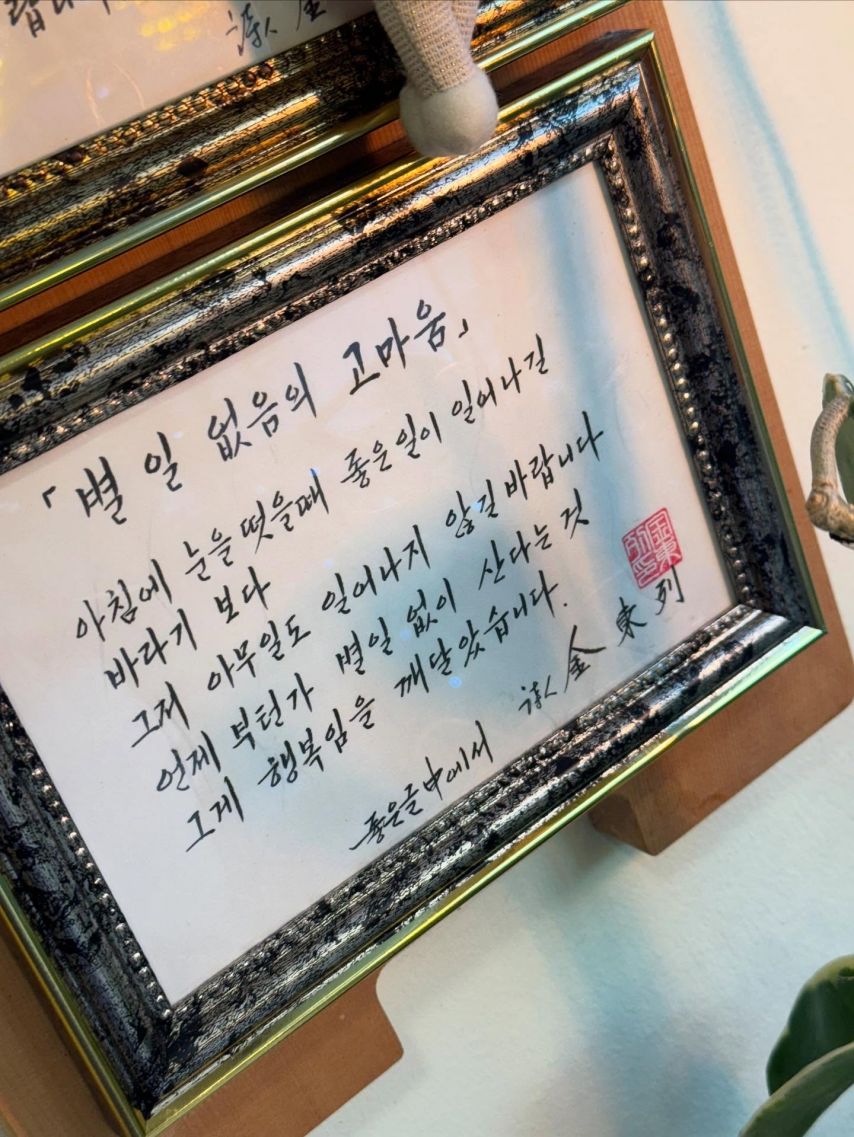 詩人 金
「별 일 없음의 고마움」
아침에 눈을 떳을때 좋은일이 일어나길
바라기 보다
그저 아무일도 일어나지 않길 바랍니다
언제 부턴가 별일 없이 산다는 것
그게 행복임을 깨달았습니다.
좋은글中에서 詩人 金東列